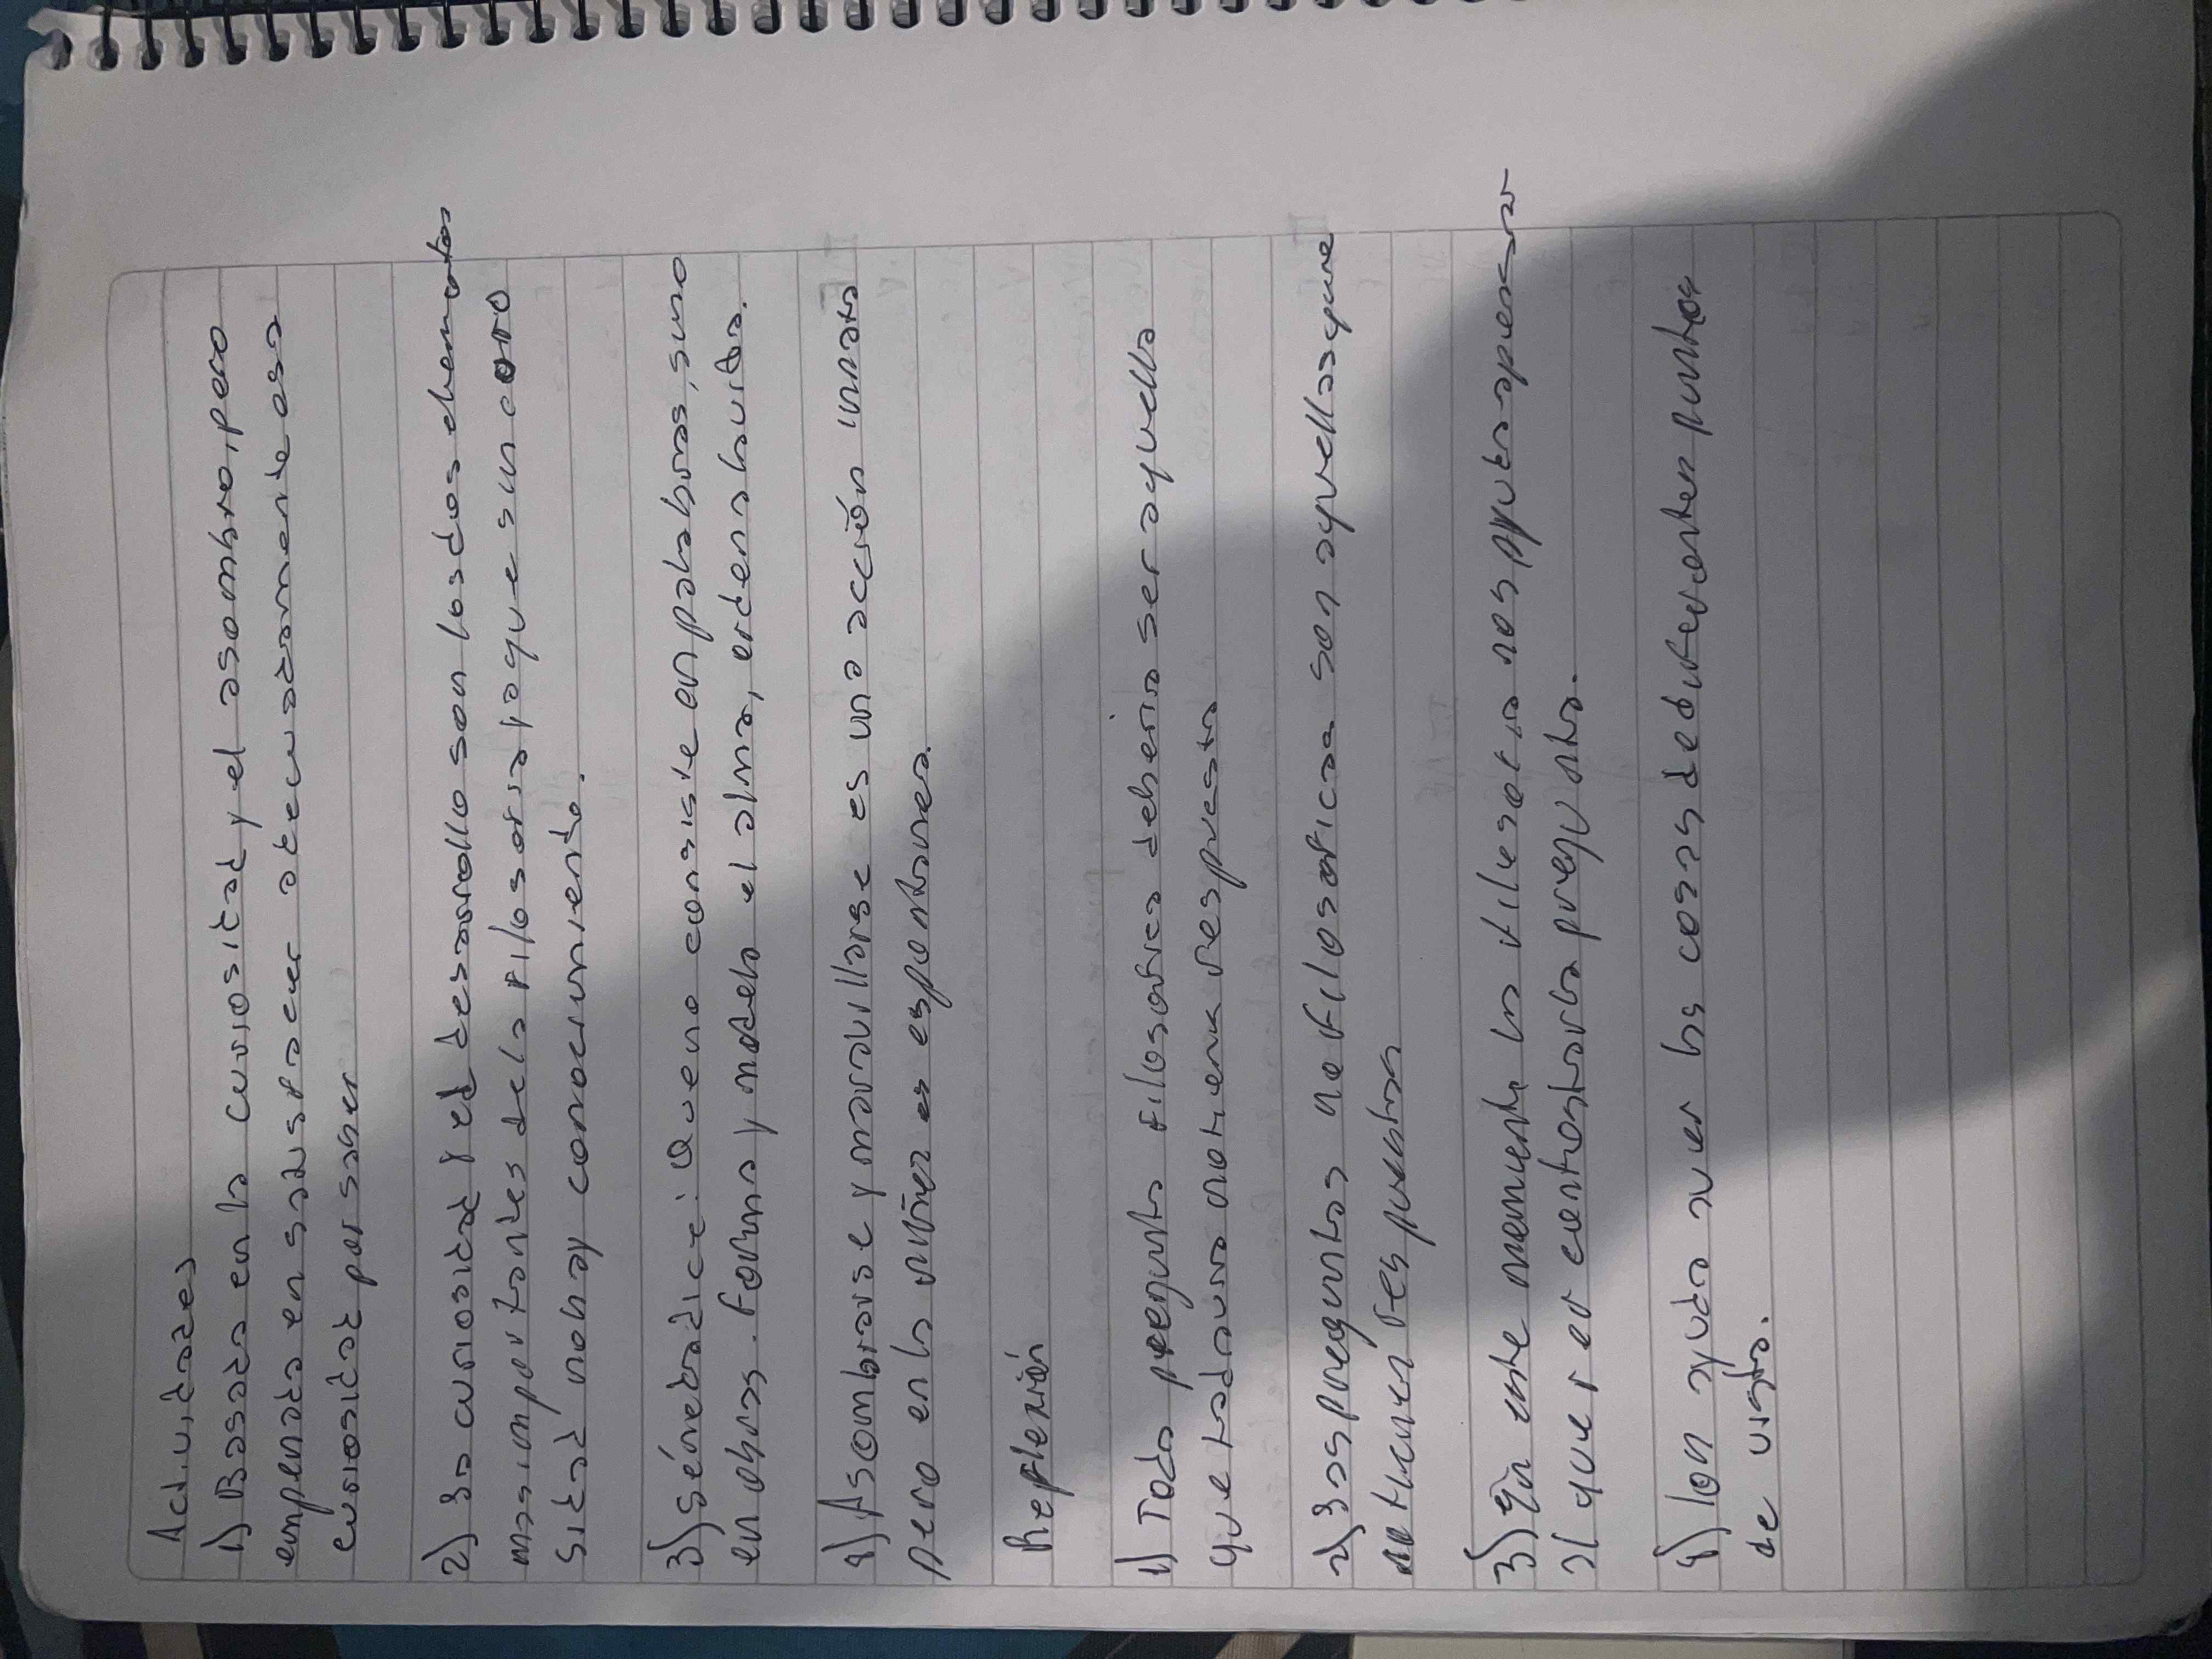 Actividades
1) Basada en la curiosidad y el asombro, pero
empeñada en satisfacer adecuadamente esa
curiosidad por saber
2) La curiosidad y el desarrollo son los dos elementos
mas importantes de la filosofia ya que sin
sidad no hay conocimiento.
3) Séneca dice: Que no consiste en palabras, sino
en obras. Forma y modela el alma, ordena la vida.
4) Asombrarse y maravillarse es una acción innata
pero en la niñez es espontanea.
Reflexión
1) Toda pregunta filosofica deberia ser aquella
que todavia no tiene respuesta
2) Las preguntas no filosoficas son aquellas que
tienen respuestas
3) En este momento la filosofia nos ayuda a pensar
al querer contestar la pregunta.
4) ayuda a ver las cosas de diferentes puntos
de vista.